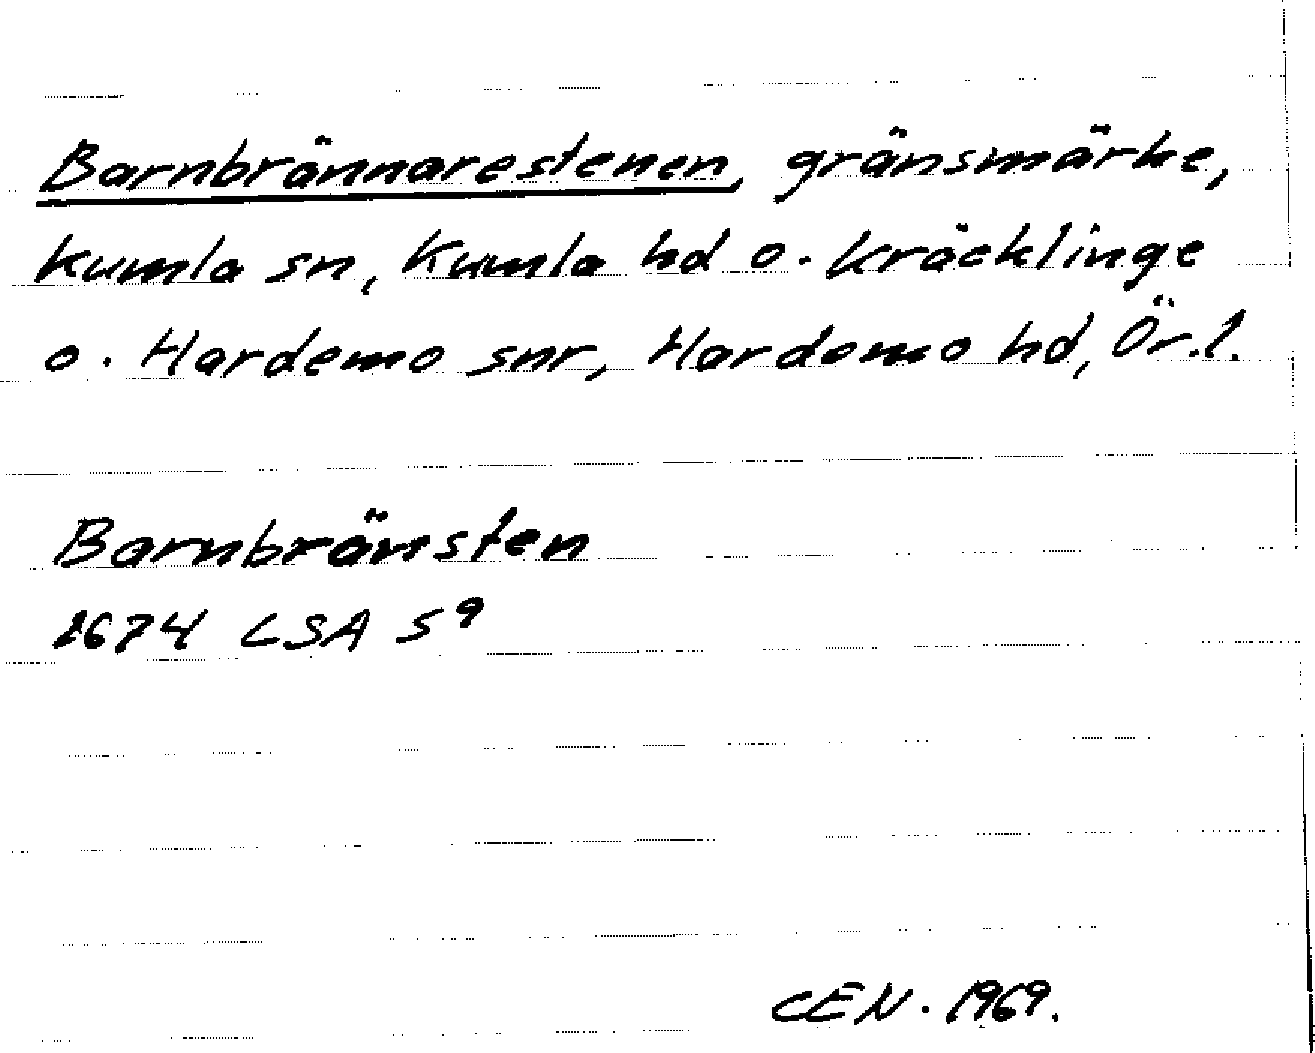 Barnbrännarestenen, gränsmärke,
Kumla sn, Kumla hd o. Kräcklinge
o. Hardemo snr, Hardemo hd, Ör.l.
Barnbränsten
1674 LSA S9
CEN. 1969.